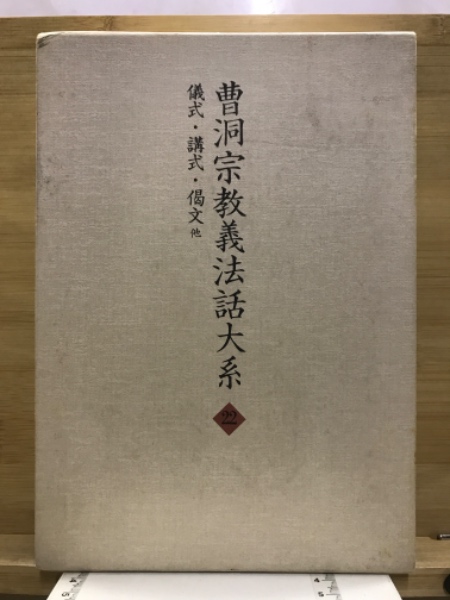 曹洞宗教義法話大系
22
儀式・講式・偈文他